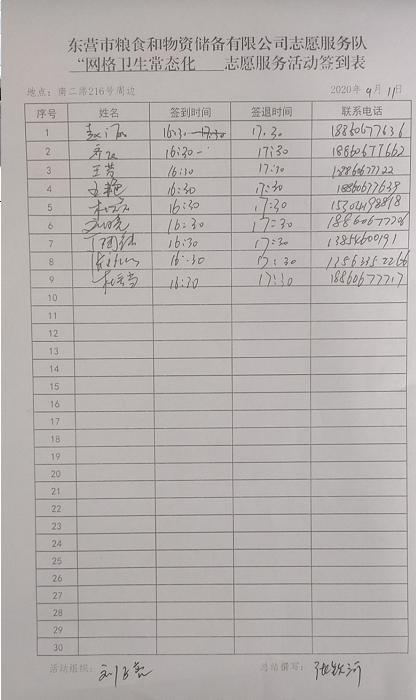 东营市粮食和物资储备有限公司志愿服务队
“网格卫生常态化 志愿服务活动签到表
地点：南二路216号周边 2020年9月11
序号 姓名 签到时间 签退时间 联系电话
1 16:30 17:30 18860677636
2 16:30 17:30 18860677662
3 王芳 16:30 17:30 18860677722
4 王艳 16:30 17:30 18860677639
5 16:30 17:30
6 16:30 17:30 18860677206
7 16:30 17:30 13854600191
8 16:30 17:30
9 16:30 17:30 18860677717
10
11
12
13
14
15
16
17
18
19
20
21
22
23
24
25
26
27
28
29
30
活动组织： 总结撰写： 张铁河